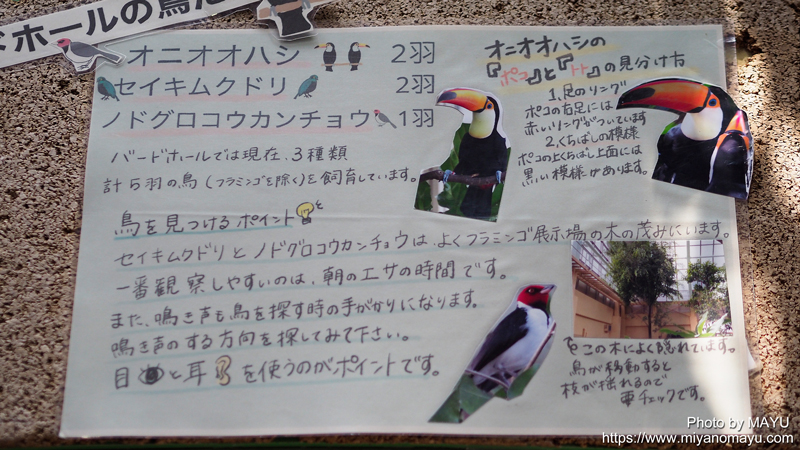 ドホールの鳥た
オニオオハシ 2羽
セイキムクドリ 2羽
ノドグロコウカンチョウ 1羽
バードホールでは現在、3種類
計5羽の鳥(フラミンゴを除く)を飼育しています。
オニオオハシの
『ポコ』と『トト』の見分け方
1.足のリング
ポコの右足には
赤いリングがついています
2.くちばしの模様
ポコの上くちばし上面には
黒い模様があります。
鳥を見つけるポイント
セイキムクドリとノドグロコウカンチョウは、よくフラミンゴ展示場の木の茂みにいます。
一番観察しやすいのは、朝のエサの時間です。
また、鳴き声も鳥を探す時の手がかりになります。
鳴き声のする方向を探してみて下さい。
目と耳を使うのがポイントです。
この木によく隠れています。
鳥が移動すると
枝が揺れるので
要チェックです。
Photo by MAYU
https://www.miyanomayu.com/